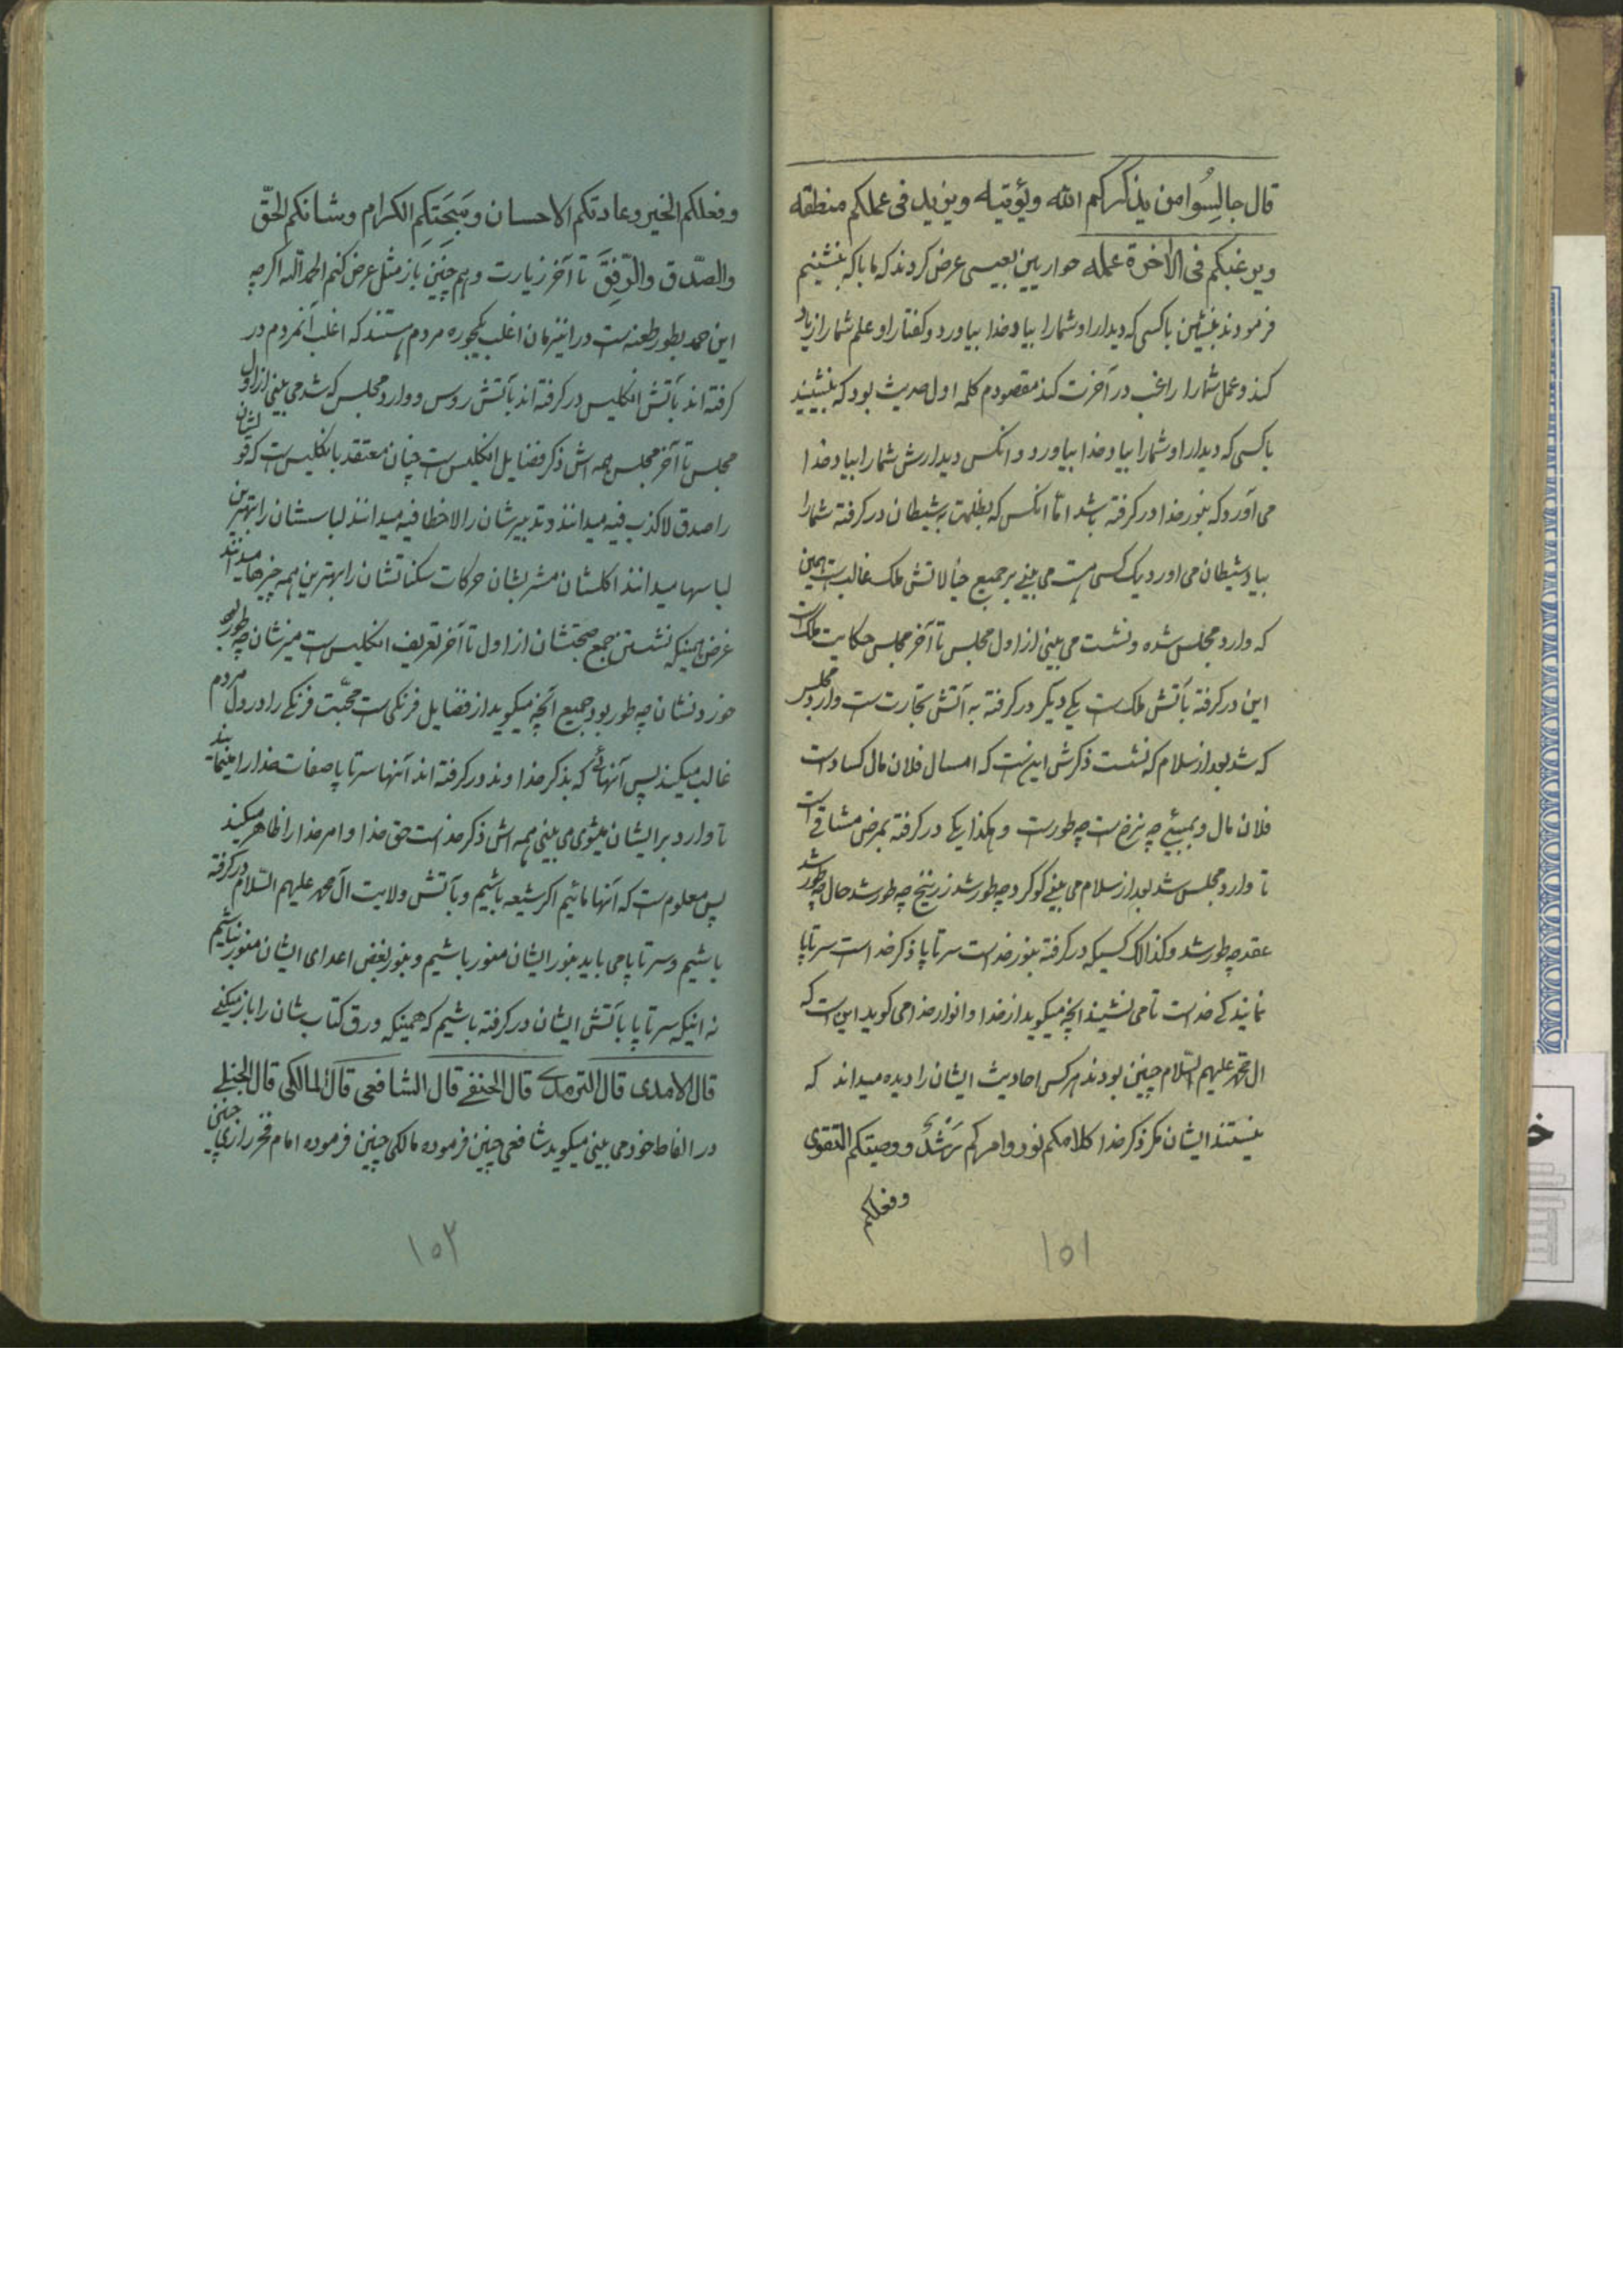 قال جالِسُوا من یذکرکم الله رؤیته ویزید فی عملکم منطقه
ویرغبکم فی الاخرة عمله حواریین بعیسی عرض کردند که ما با که بنشینیم
فرمودند بنشینین با کسی که دیدار او شمارا بیاد خدا بیاورد و کفتار او علم شمارا زیاد
کند و عمل شمارا راغب در آخرت کند مقصودم کلمه اول حدیث بود که بنشینید
با کسی که دیدار او شمارا بیاد خدا بیاورد و انکس دیدارش شمارا بیاد خدا
می آورد که بنور خدا در کرفته باشد اما انکس که بظلمت شیطان در کرفته شمارا
بیاد شیطان می اورد یک کسی هست می بینی بر جمیع خیالاتش ملک غالبست همین
که وارد مجلس شده و نشست می بینی از اول مجلس تا آخر مجلس حکایت ملک است
این در کرفته بآتش ملک است یکی دیکر در کرفته به آتش تجارتست وارد مجلس
که شد بعد از سلام که نشست ذکرش اینست که امسال فلان مال کساد است
فلان مال در بمبئی چه نرخ است چه طورست و هکذا یکی در کرفته بمرض مشاقی است
تا وارد مجلس شد بعد از سلام می بینی کوکرد چه طور شد زرنیخ چه طور شد حال چه طور شد
عقد چه طور شد و کذالک کسیکه در کرفته بنور خداست سر تا پا ذکر خداست سر تا پا
نمایندکی خداست تا می نشیند انچه میکوید از خدا و انوار خدا می کوید این است که
ال محمد علیهم السّلام چنین بودند هر کس احادیث ایشان را دیده میداند که
نیستند ایشان مکر ذکر خدا کلامکم نور و امرکم رُشدٌ و وصیتکم التقوی
وفعلکم
۱۵۱
وفعلکم الخیر وعادتکم الاحسان وسَجِیَتکم الکرام وشانکم الحقّ
والصّدق والرّفق تا آخر زیارت و هم چنین باز مثل عرض کنم الحمد لله اکرچه
این حمد بطور طعنه ست در اینزمان اغلب یکجوره مردم هستند که اغلب آنمردم در
کرفته اند بآتش انکلیس در کرفته اند بآتش روس و وارد مجلس که شد می بینی از اول
مجلس تا آخر مجلس همه اش ذکر فضایل انکلیس است چنان معتقد بانکلیس است که قولشان
را صدق لا کذب فیه میدانند و تدبیرشان را لا خطا فیه میدانند لباسشان را بهترین
لباسها میدانند اکلشان مشربشان حرکات سکناتشان را بهترین همه چیزها میدانند
غرض همینکه نشستن جمیع صحبتشان از اول تا آخر تعریف انکلیس است میزشان چه طور بود
خوردنشان چه طور بود جمیع آنچه میکوید از فضایل فرنکی است محبّت فرنکی را در دل مردم
غالب میکند پس آنهائی که بذکر خداوند در کرفته اند آنها سر تا پا صفات خدا را مینمایند
تا وارد بر ایشان میشوی می بینی همه اش ذکر خداست حق خدا و امر خدا را ظاهر میکند
پس معلوم ست که آنها مائیم اکر شیعه باشیم و بآتش ولایت آل محمد علیهم السّلام در کرفته
باشیم و سر تا پا می باید بنور ایشان منور باشیم و بنور بغض اعدای ایشان منور باشیم
نه اینکه سر تا پا بآتش ایشان در کرفته باشیم که همینکه ورق کتاب شان را باز میکنی
قال الامدی قال الترمدی قال الحنفی قال الشافعی قال المالکی قال الحنبلی
در الفاظ خود می بینی میکوید شافعی چنین فرموده مالکی چنین فرموده امام فخر رازی چنین
۱۵۲